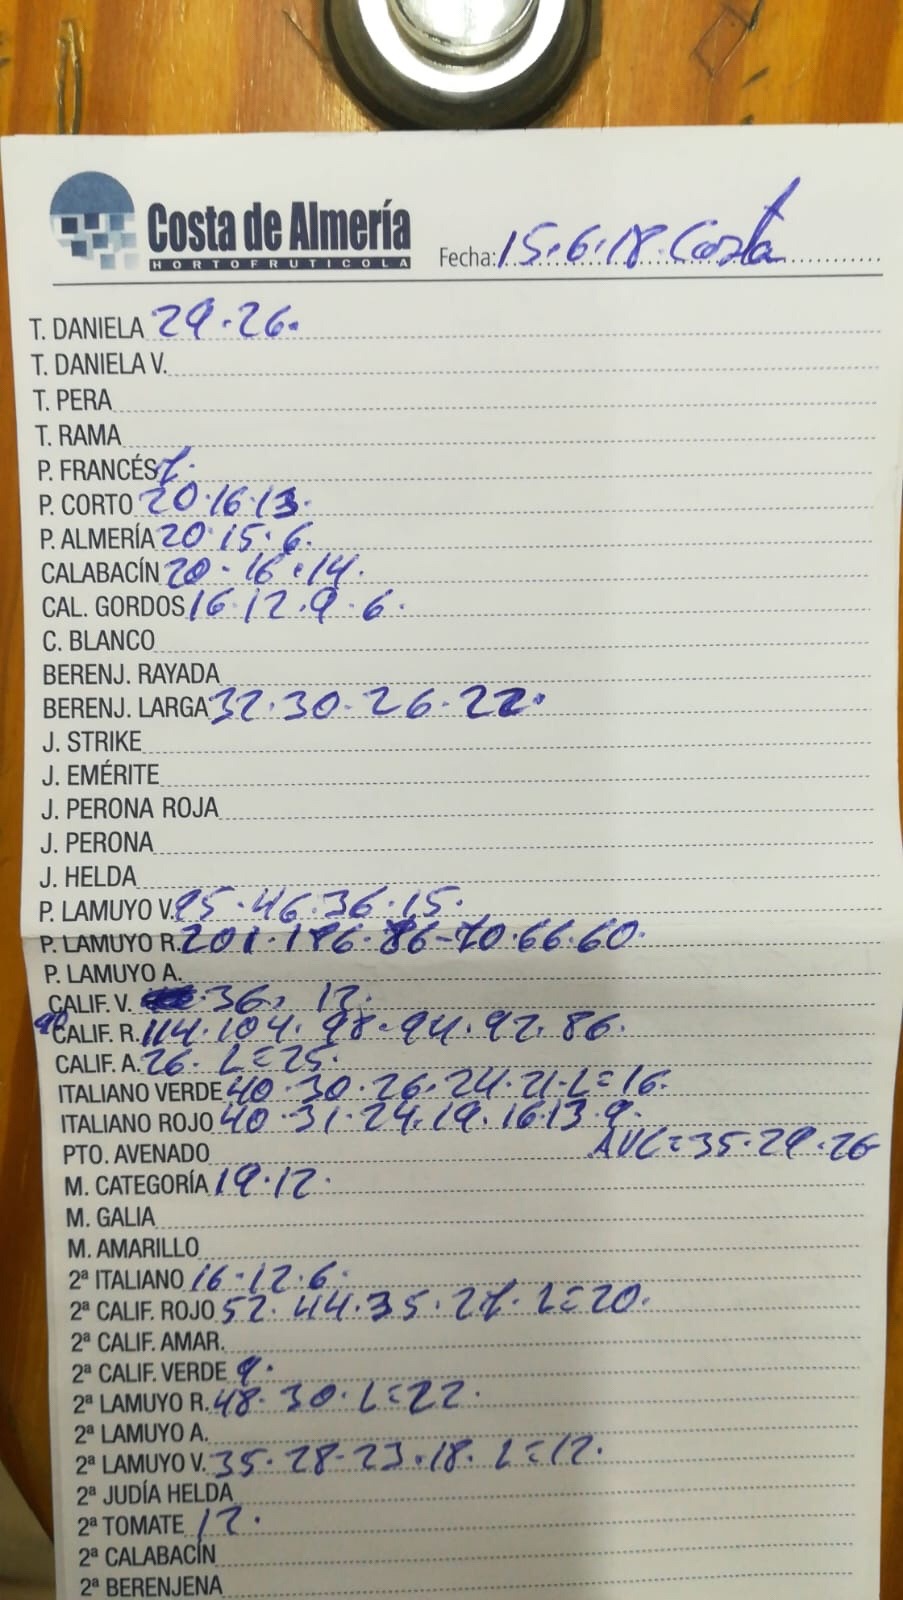 Costa de Almería
HORTOFRUTICOLA
Fecha: 15.6.18. Costa
T. DANIELA 29.26.
T. DANIELA V.
T. PERA
T. RAMA
P. FRANCÉS 7.
P. CORTO 20.16.13.
P. ALMERÍA 20.15.6.
CALABACÍN 20.16.14.
CAL. GORDOS 16.12.9.6.
C. BLANCO
BERENJ. RAYADA
BERENJ. LARGA 32.30.26.22.
J. STRIKE
J. EMÉRITE
J. PERONA ROJA
J. PERONA
J. HELDA
P. LAMUYO V. 95.46.36.15.
P. LAMUYO R. 201.176.86-70.66.60.
P. LAMUYO A.
CALIF. V. 36. 12.
CALIF. R. 114.104.98.94.92.86.
CALIF. A. 26. L=25.
ITALIANO VERDE 40.30.26.24.21.L=16.
ITALIANO ROJO 40.31.24.19.16.13.9.
PTO. AVENADO AVC=35.29.26
M. CATEGORÍA 19.12.
M. GALIA
M. AMARILLO
2ª ITALIANO 16.12.6.
2ª CALIF. ROJO 52.44.35.27.L=20.
2ª CALIF. AMAR.
2ª CALIF. VERDE 9.
2ª LAMUYO R. 48.30.L=22.
2ª LAMUYO A.
2ª LAMUYO V. 35.28-23.18.L=12.
2ª JUDÍA HELDA
2ª TOMATE 12.
2ª CALABACÍN
2ª BERENJENA